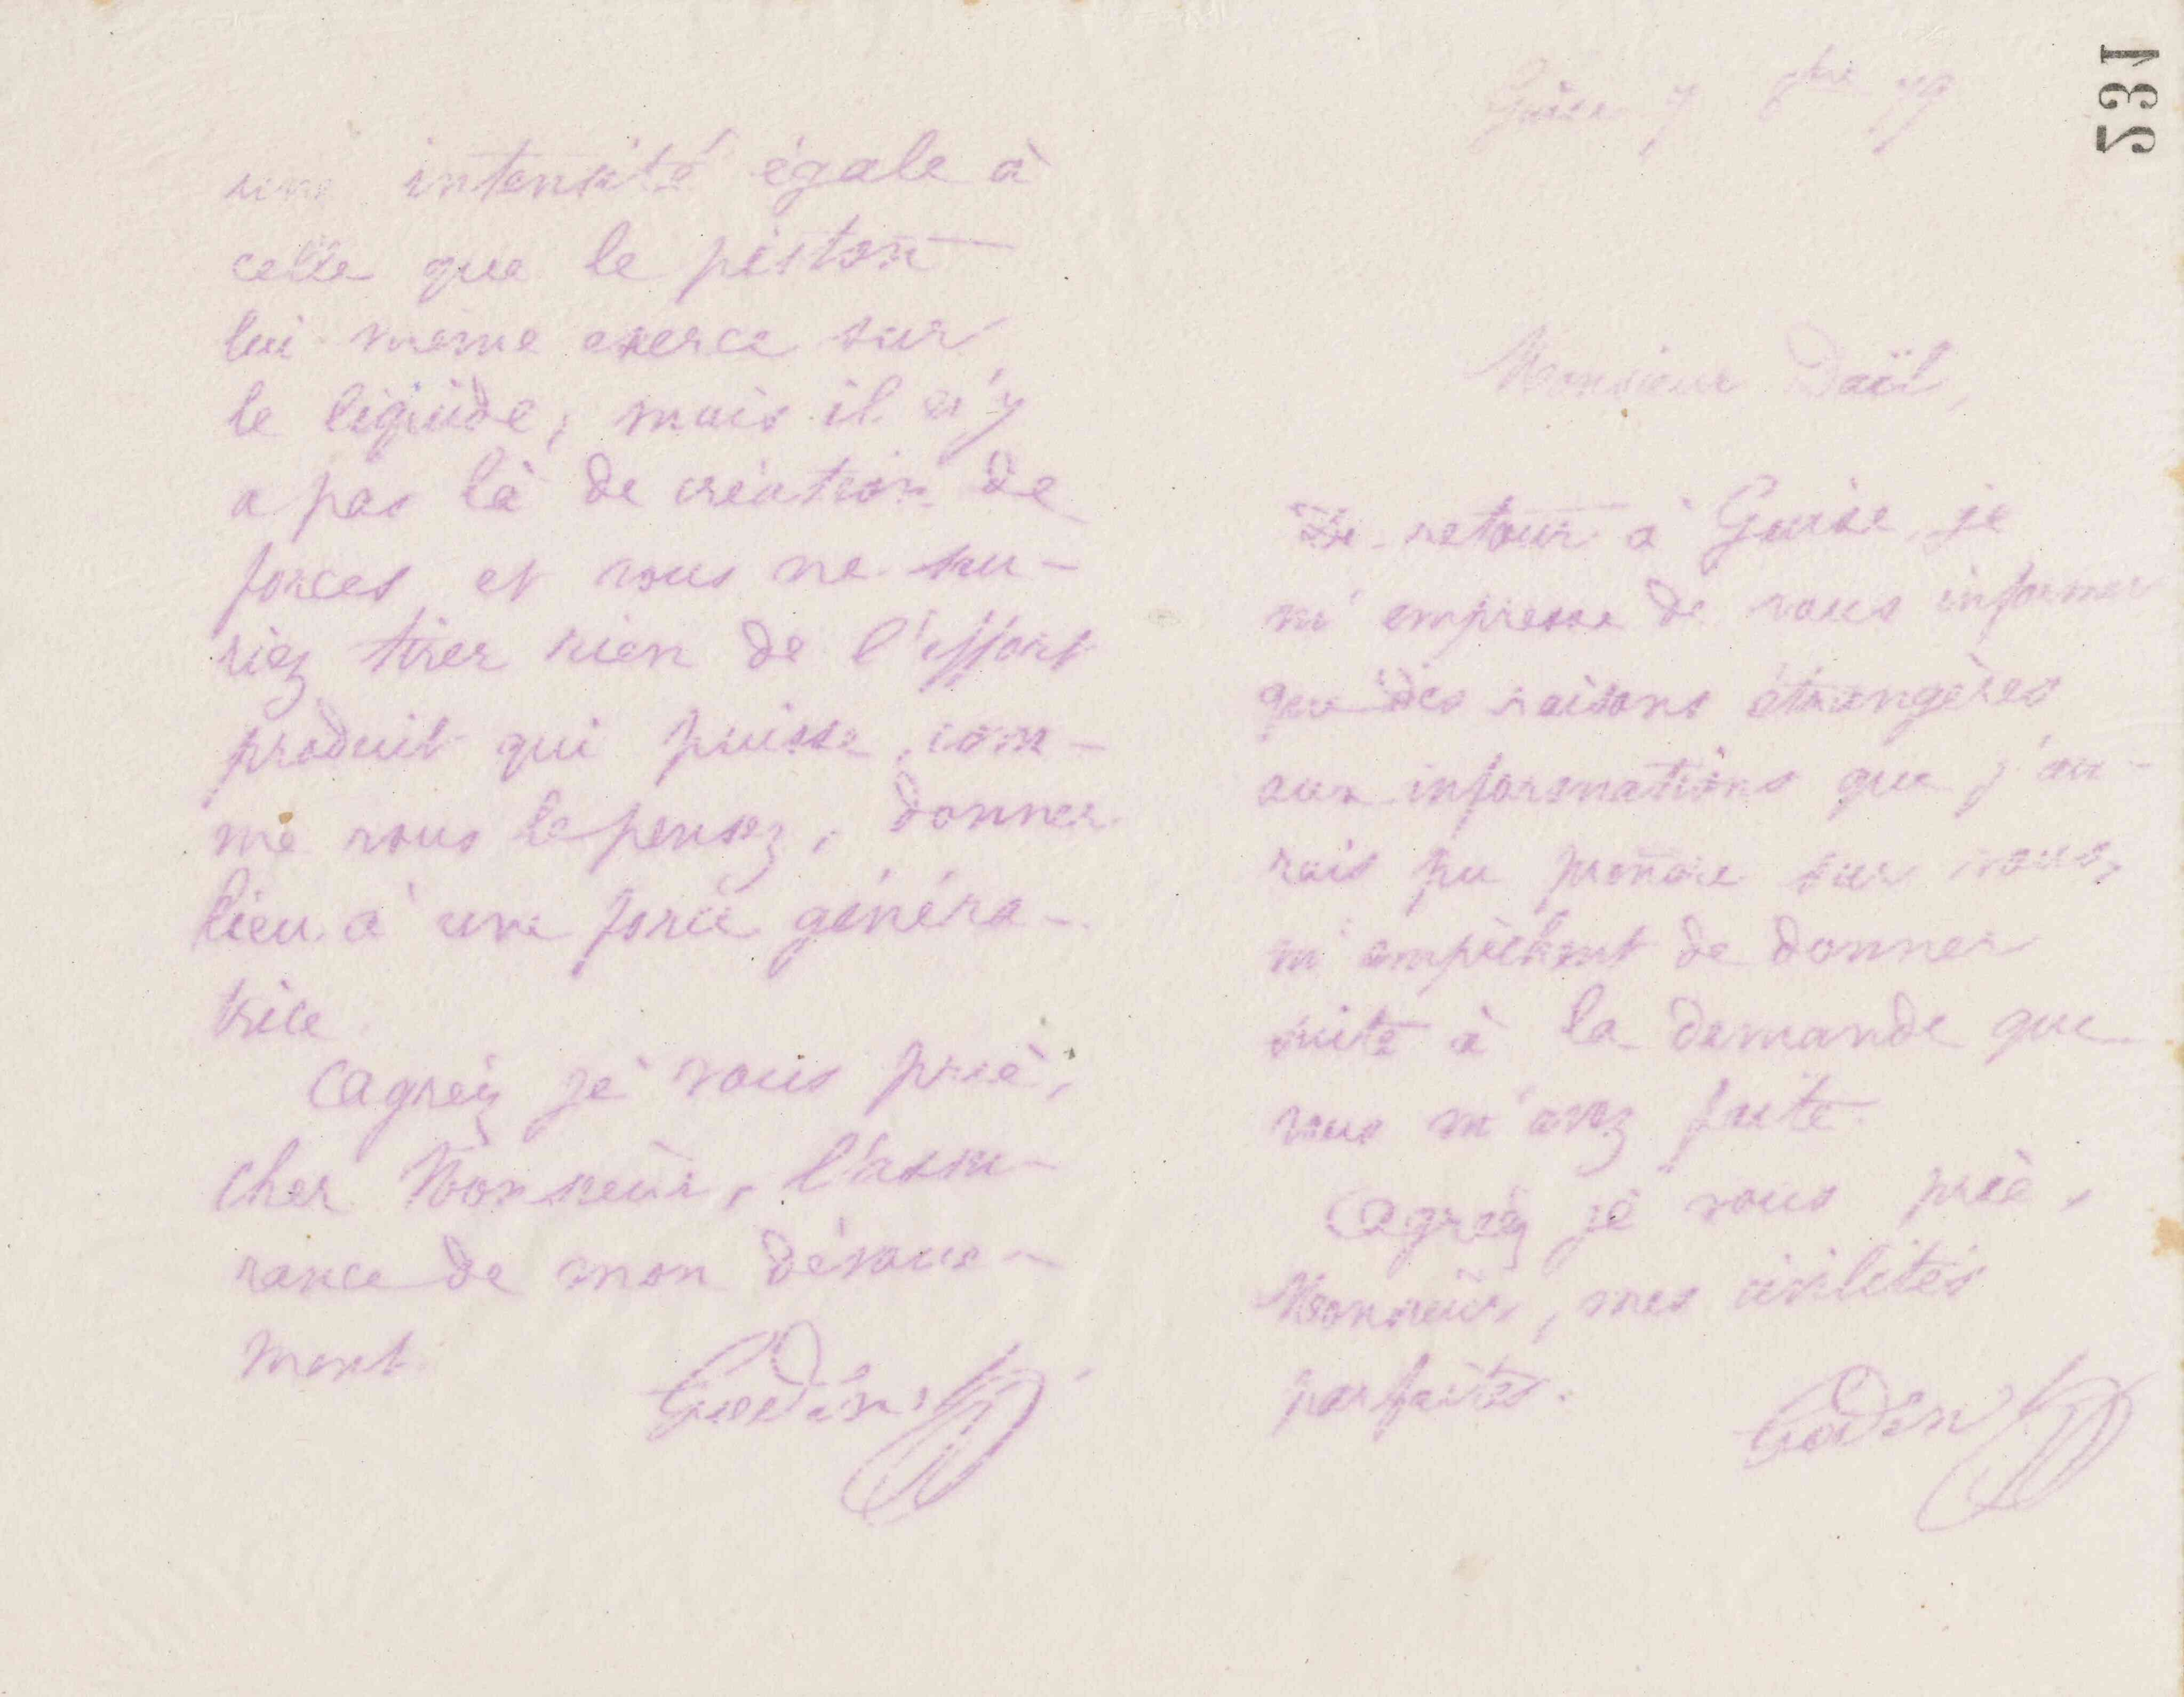 une intensité égale à
celle que le piston
lui même exerce sur
le liquide, mais il n'y
a pas là de création de
forces et vous ne sau-
riez tirer rien de l'effort
produit qui puisse, com-
me vous le pensez, donner
lieu à une force généra-
trice
Agréez je vous prie,
cher Monsieur, l'assu-
rance de mon dévoue-
ment
Godin
531
Guise 7 8bre 79
Monsieur Daïl,
De retour à Guise, je
m'empresse de vous informer
que des raisons étrangères
aux informations que j'au-
rais pu prendre sur vous,
m'empêchent de donner
suite à la demande que
vous m'avez faite.
Agréez je vous prie,
Monsieur, mes civilités
parfaites.
Godin